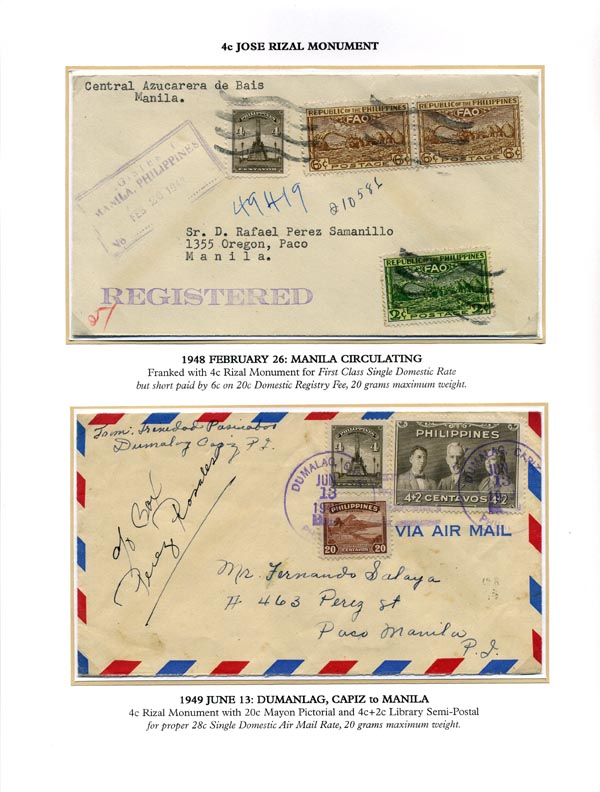 4c JOSE RIZAL MONUMENT
Central Azucarera de Bais
Manila.
PHILIPPINES
4 4
CENTAVOS
REPUBLIC OF THE PHILIPPINES
FAO
6¢ 6¢
POSTAGE
REPUBLIC OF THE PHILIPPINES
FAO
6¢ 6¢
POSTAGE
MANILA, PHILIPPINES
FEB 26 194
No
49419
210582
Sr. D. Rafael Perez Samanillo
1355 Oregon, Paco
Manila.
REPUBLIC OF THE PHILIPPINES
FAO
2¢ 2¢
POSTAGE
REGISTERED
1948 FEBRUARY 26: MANILA CIRCULATING
Franked with 4c Rizal Monument for First Class Single Domestic Rate
but short paid by 6c on 20c Domestic Registry Fee, 20 grams maximum weight.
From: Trinidad
Dumalag Capiz P.I.
c/o Box
Perez Rosales
4 4
PHILIPPINES
4+2 CENTAVOS 4+2
DUMALAG,
JUN
13
19
DUMALAG, CAPIZ
JUN
13
PHILIPPINES
20 CENTAVOS 20
VIA AIR MAIL
Mr. Fernando Salaya
# 463 Perez st
Paco Manila
P.I.
1949 JUNE 13: DUMANLAG, CAPIZ to MANILA
4c Rizal Monument with 20c Mayon Pictorial and 4c+2c Library Semi-Postal
for proper 28c Single Domestic Air Mail Rate, 20 grams maximum weight.